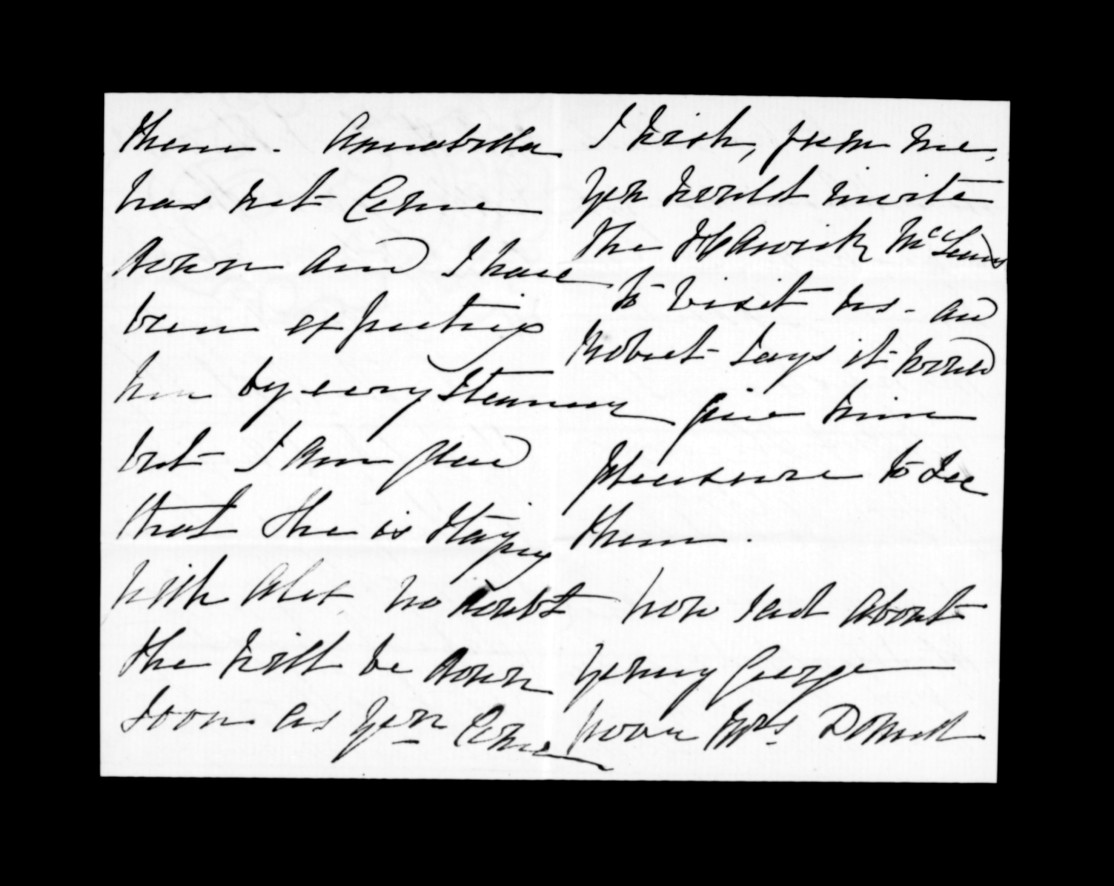 them. Annabella
has not Come
down and I have
been expecting
her by every Steamer
but I am glad
that She is Staying
with Alex. no doubt
She will be down
Soon as you Come
I wish, from me,
you would invite
the H. Awick McLeans
to visit us - and
Robert Says it would
give him
pleasure to See
them.
how sad about
young George
poor Mrs Donald